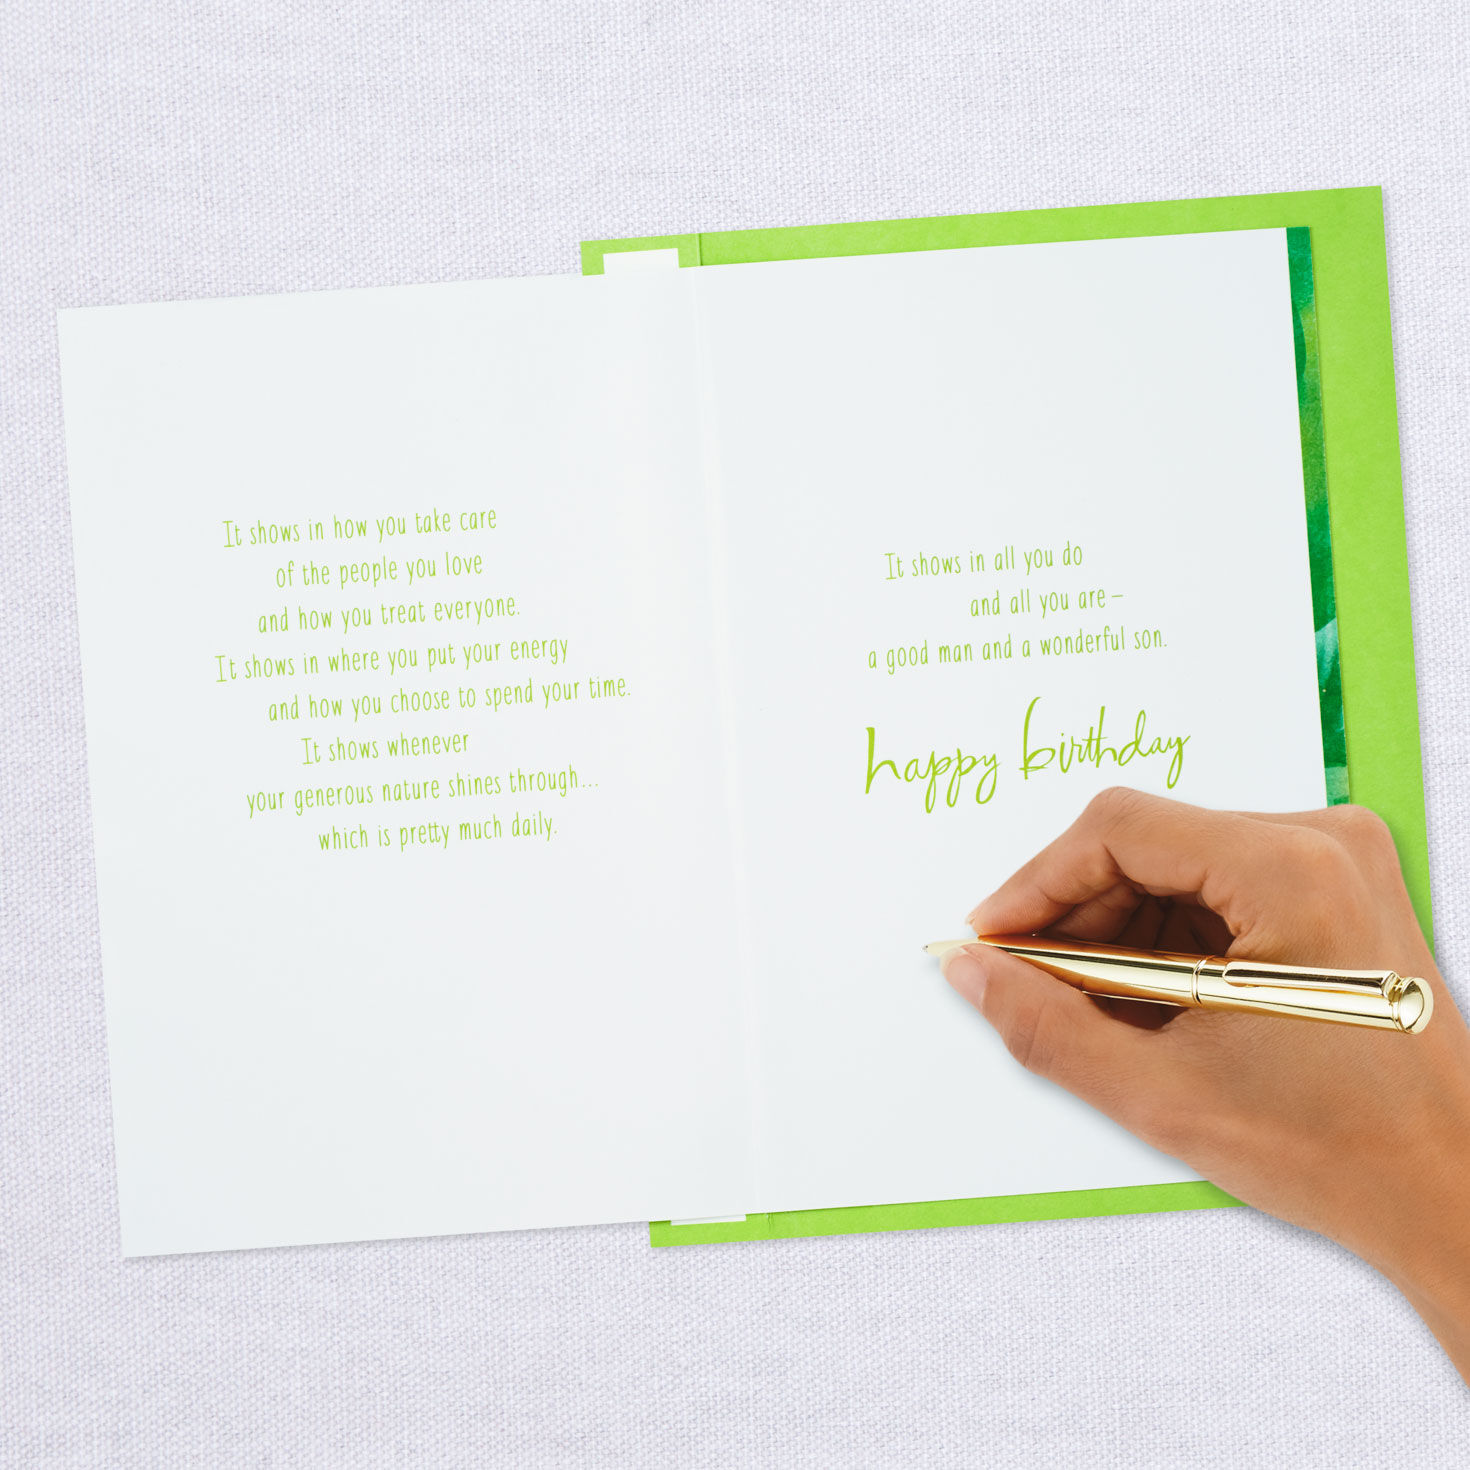 It shows in how you take care
of the people you love
and how you treat everyone.
It shows in where you put your energy
and how you choose to spend your time.
It shows whenever
your generous nature shines through...
which is pretty much daily.
It shows in all you do
and all you are–
a good man and a wonderful son.
happy birthday